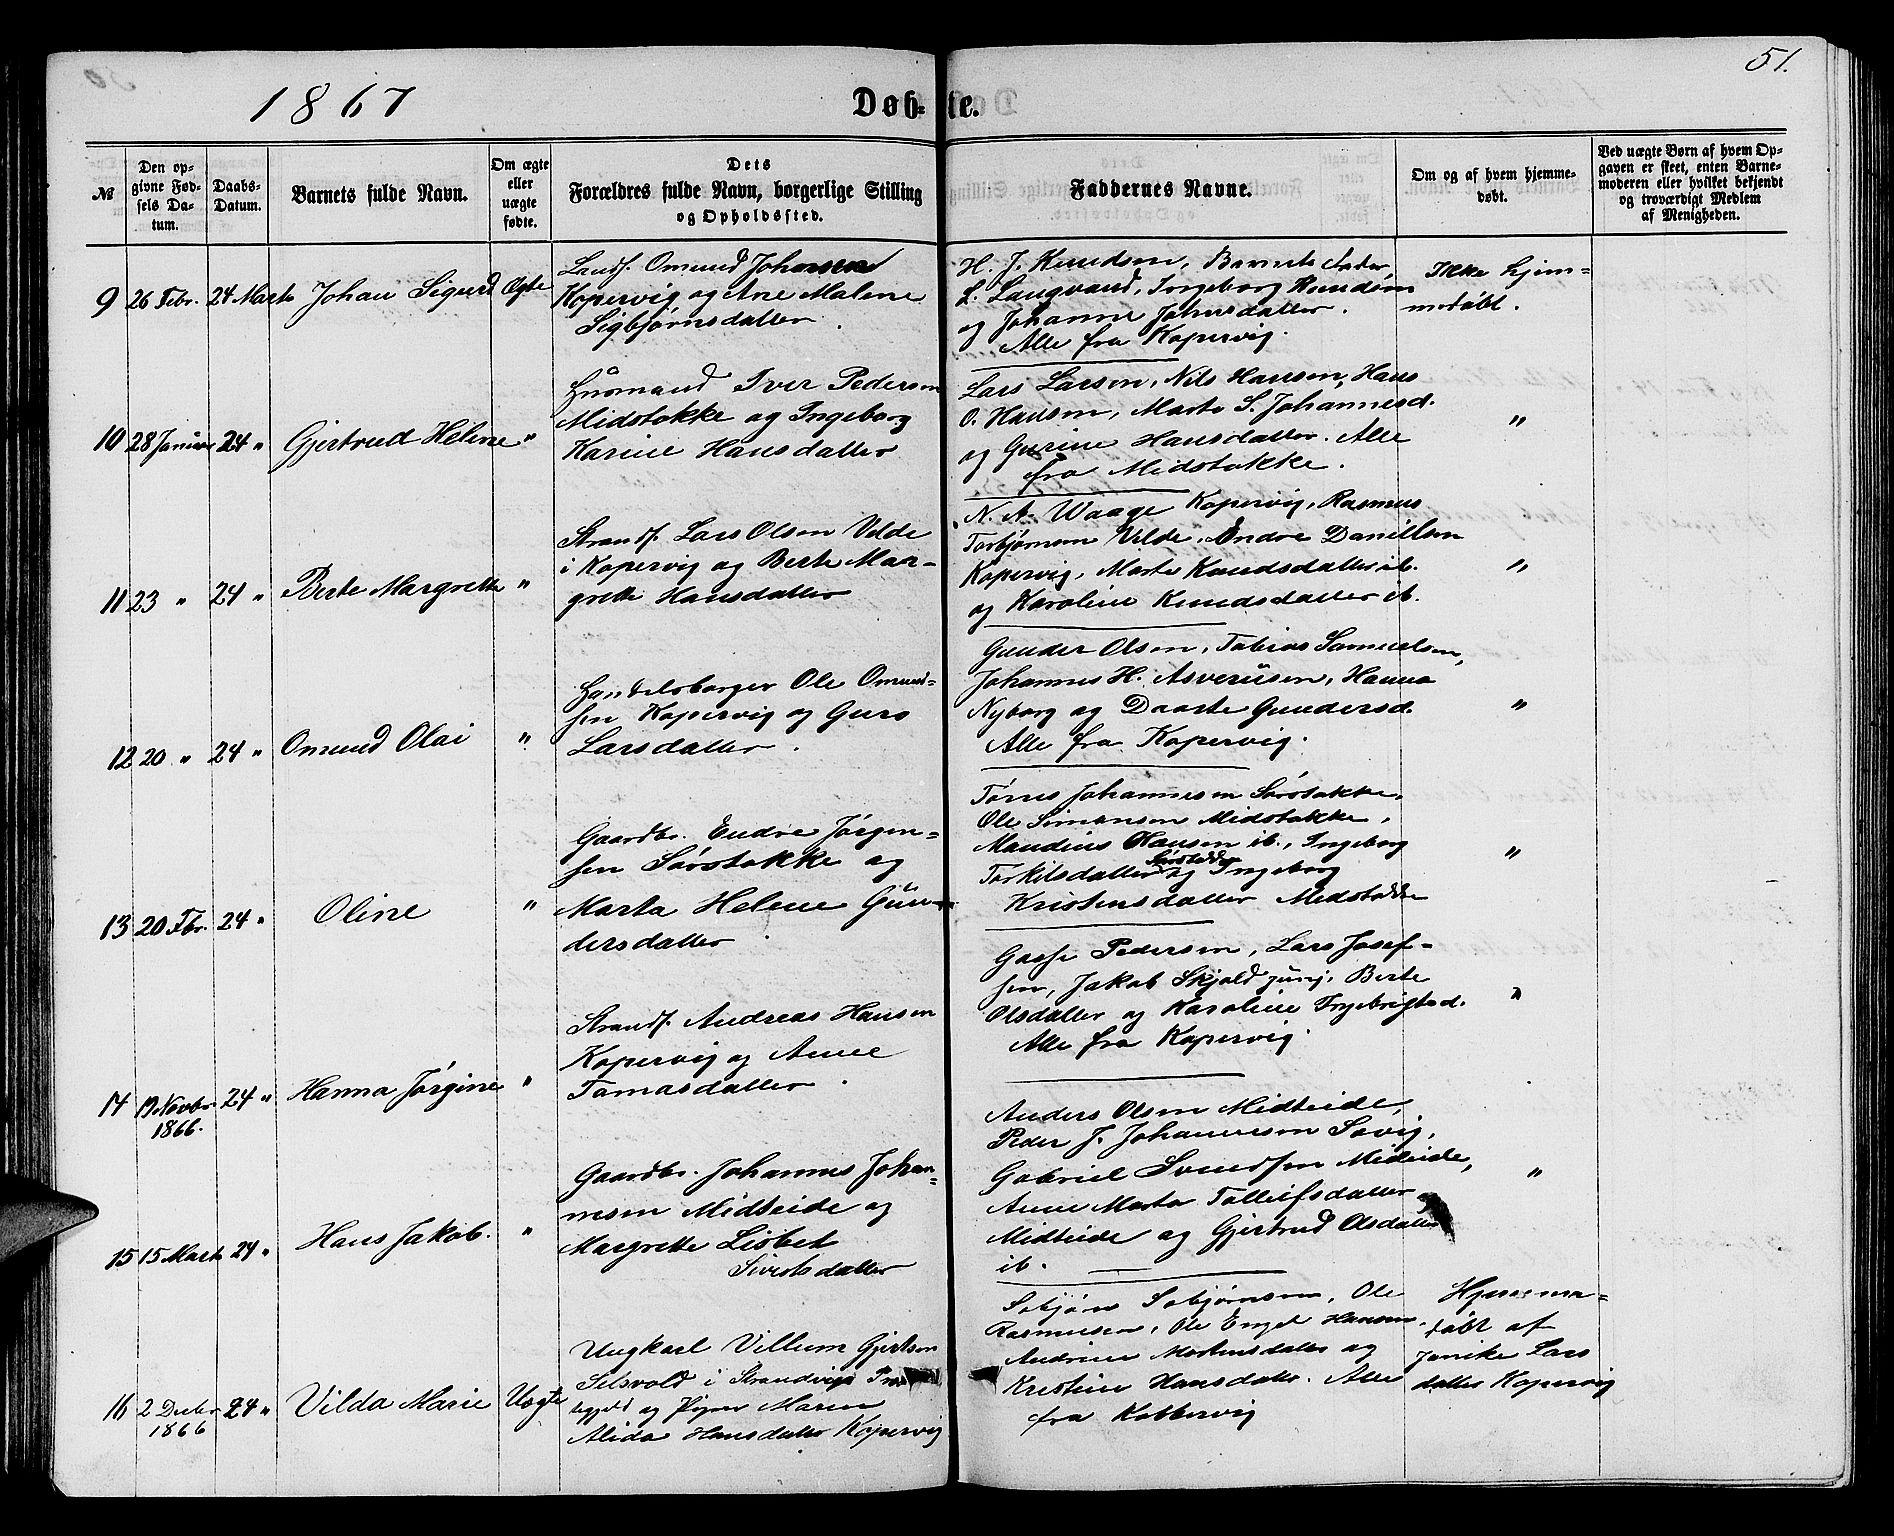 51.
1867
Døb-te.
№
Den op-
givne Fød-
sels Da-
tum.
Daabs-
Datum.
Barnets fulde Navn.
Om ægte
eller
uægte
fødte.
Dets
Forældres fulde Navn, borgerlige Stilling
og Opholdssted.
Faddernes Navne.
Om og af hvem hjemme-
døbt.
Ved uægte Børn af hvem Op-
gaven er skeet, enten Barne-
moderen eller hvilket bekjendt
og troværdigt Medlem
af Menigheden.
9 26 Febr. 24 Marts Johan Sigurd Ægte
Omund Johansen
Kopervig og Ane Malene
Sigbjørnsdatter.
H. J. Knudsen, Barnets Fader,
L. Langvand, Ingeborg Knudsen
og Johanne Johnsdatter.
Alle fra Kopervig.
Ikke hjem-
medøbt.
10 28 Januar 24 " Gjertrud Helene "
Huusmand Iver Pedersen
Midstokke og Ingeborg
Karine Hansdatter
Lars Larsen, Nils Hansen, Hans
O. Hansen, Marta S. Johannesd.
og Gurine Hansdatter. Alle
fra Midstokke.
"
11 23 " 24 " Berte Margrette "
Strands. Lars Olsen Velde
i Kopervig og Berte Mar-
grette Hansdatter
N. A. Waage Kopervig, Rasmus
Torbjørnsen Velde, Endre Danielsen
Kopervig, Marte Knudsdatter ib.
og Karoline Knudsdatter ib.
"
12 20 " 24 " Omund Olai "
Handelsborger Ole Omund-
sen Kopervig og Guro
Larsdatter.
Gunder Olsen, Tobias Samuelsen,
Johannes H. Asverusen, Hanna
Nyborg og Daarte Gundersd.
Alle fra Kopervig.
"
13 20 Fbr. 24 " Oline "
Gaardbr. Endre Jørgen-
sen Sørstokke og
Marta Helene Gun-
dersdatter.
Tørres Johannesen Sørstokke,
Ole Simonsen Midstokke,
Maudius Hansen ib., Ingeborg
Torkilsdatter Sørstokke og Ingeborg
Kristensdatter Medstokke
"
14 19 Novbr. 1866. 24 " Hanna Jørgine "
Strands. Andreas Hansen
Kopervig og Anne
Tomasdatter.
Gosse Pedersen, Lars Josef-
sen, Jakob Skjold junj. Berte
Olsdatter og Karoline Ingebrigtsd.
Alle fra Kopervig.
"
15 15 Marts 24 " Hans Jakob. "
Gaardbr. Johannes Johan-
nesen Midteide og
Margrette Lisbet
Sivertsdatter
Anders Olsen Midteide,
Peder J. Johannesen Søvig,
Gabriel Svendsen Mideide,
Anne Marta Tolleifsdatter
Midteide og Gjertrud Olsdatter
ib.
"
16 2 Decbr 1866 24 " Vilda Marie Uægte
Ungkarl Villum Gjertsen
Selsvold i Strandvigs
og Pigen Maren
Alida Hansdatter Kopervig
Sobjørn Sobjørnsen, Ole
Rasmussen, Ole Engel Hansen,
Andrine Mortensdatter og
Kristine Hansdatter. Alle
fra Kobbervig
Hjemme-
døbt af
Janike Lars
datter Kopervig